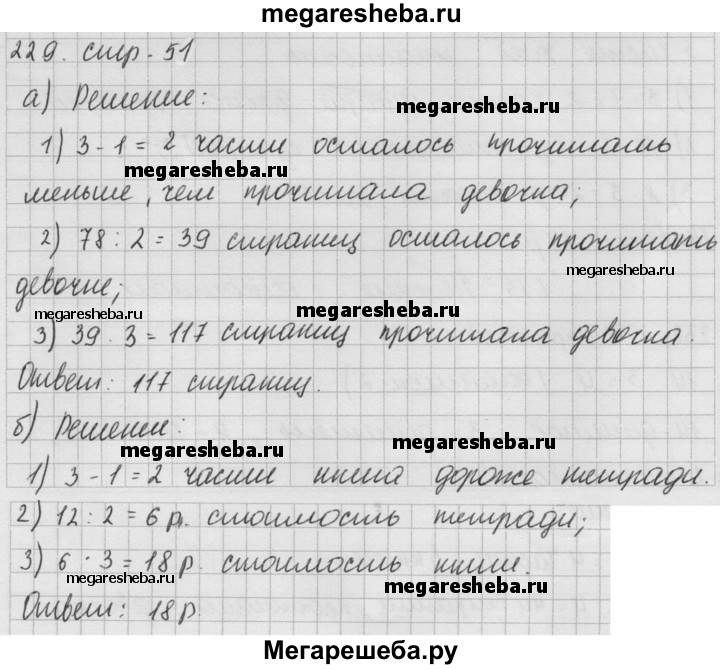 megaresheba.ru
229. стр. 51
а) Решение:
megaresheba.ru
1) 3 - 1 = 2 части осталось прочитать
megaresheba.ru
меньше, чем прочитала девочка;
2) 78 : 2 = 39 страниц осталось прочитать
megaresheba.ru
девочке;
megaresheba.ru megaresheba.ru
3) 39 · 3 = 117 страниц прочитала девочка.
Ответ: 117 страниц.
б) Решение:
megaresheba.ru megaresheba.ru
1) 3 - 1 = 2 части книга дороже тетради.
2) 12 : 2 = 6 р. стоимость тетради;
3) 6 · 3 = 18 р. стоимость книги.
megaresheba.ru megaresheba.ru
Ответ: 18 р.
Мегарешеба.ру